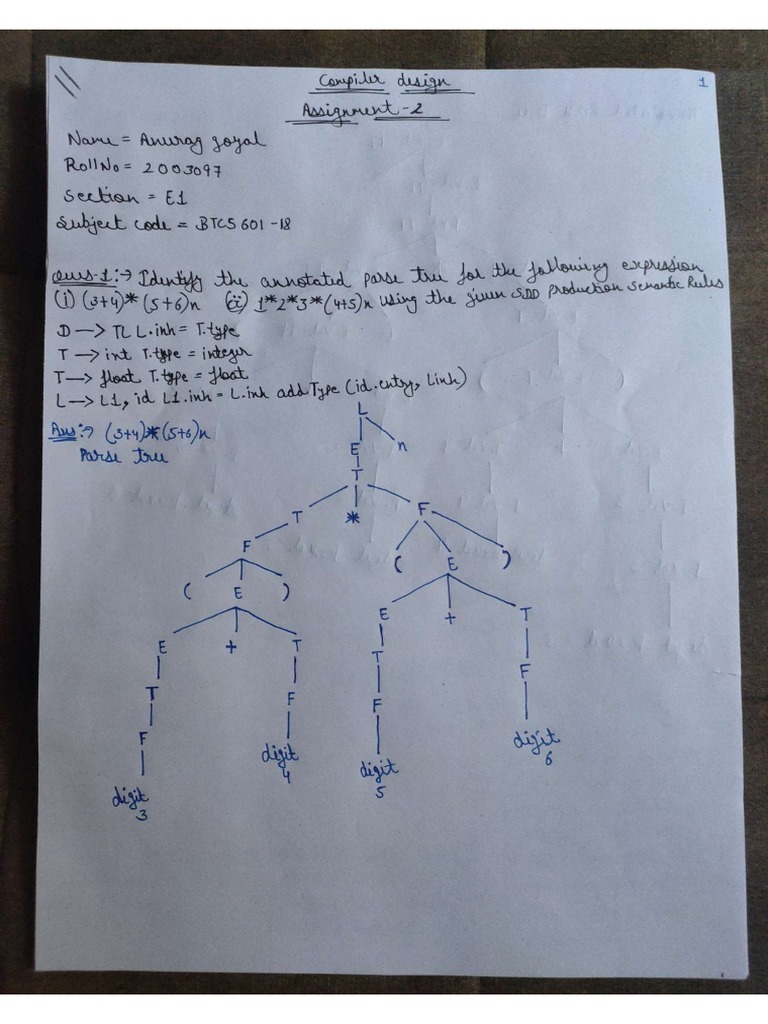 Compiler design
1
Assignment-2
Name = Anurag goyal
Roll No = 2003097
Section = E1
Subject code = BTCS 601-18
Ques-1:→ Identify the annotated parse tree for the following expression
(i) (3+4)*(5+6)n (ii) 1*2*3*(4+5)n using the given SDD Production Semantic Rules
D → TL L.inh = T.type
T → int T.type = integer
T → float T.type = float
L → L1, id L1.inh = L.inh addType (id.entry, Linh)
Ans:→ (3+4)*(5+6)n
Parse tree
L
E n
T
T * F
F ( E )
( E ) E + T
E + T T F
T F F digit 6
F digit 4 digit 5
digit 3